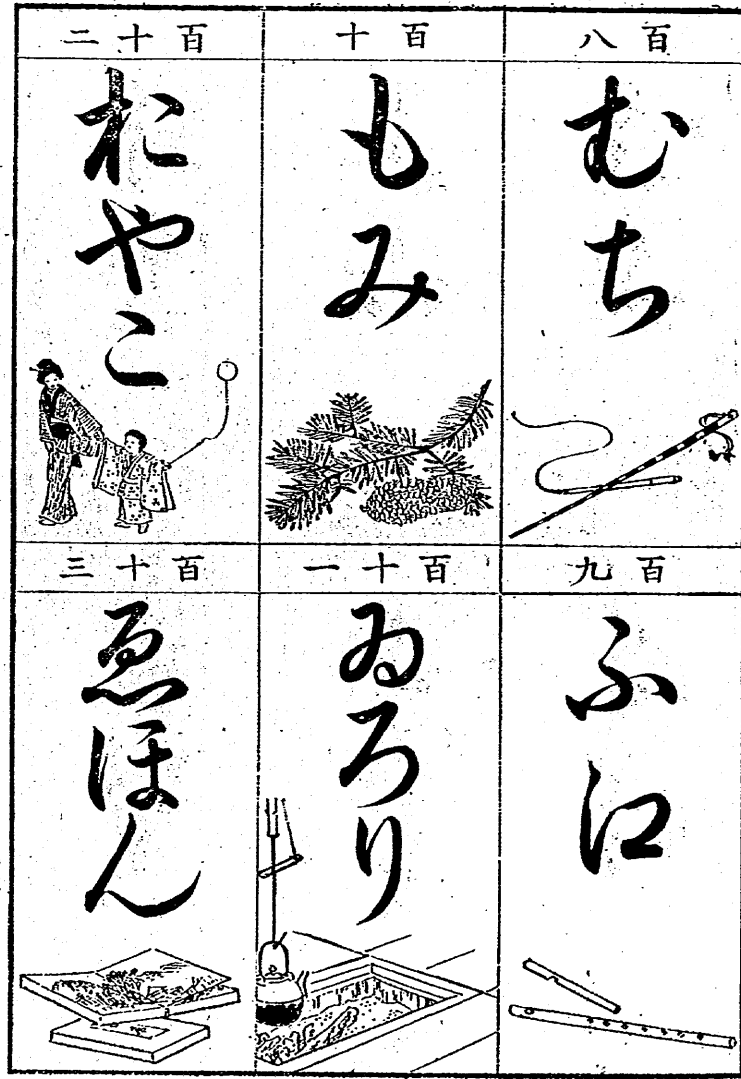 百八
むち
百九
ふ江
百十
もみ
百十一
ゐろり
百十二
おやこ
百十三
ゑほん